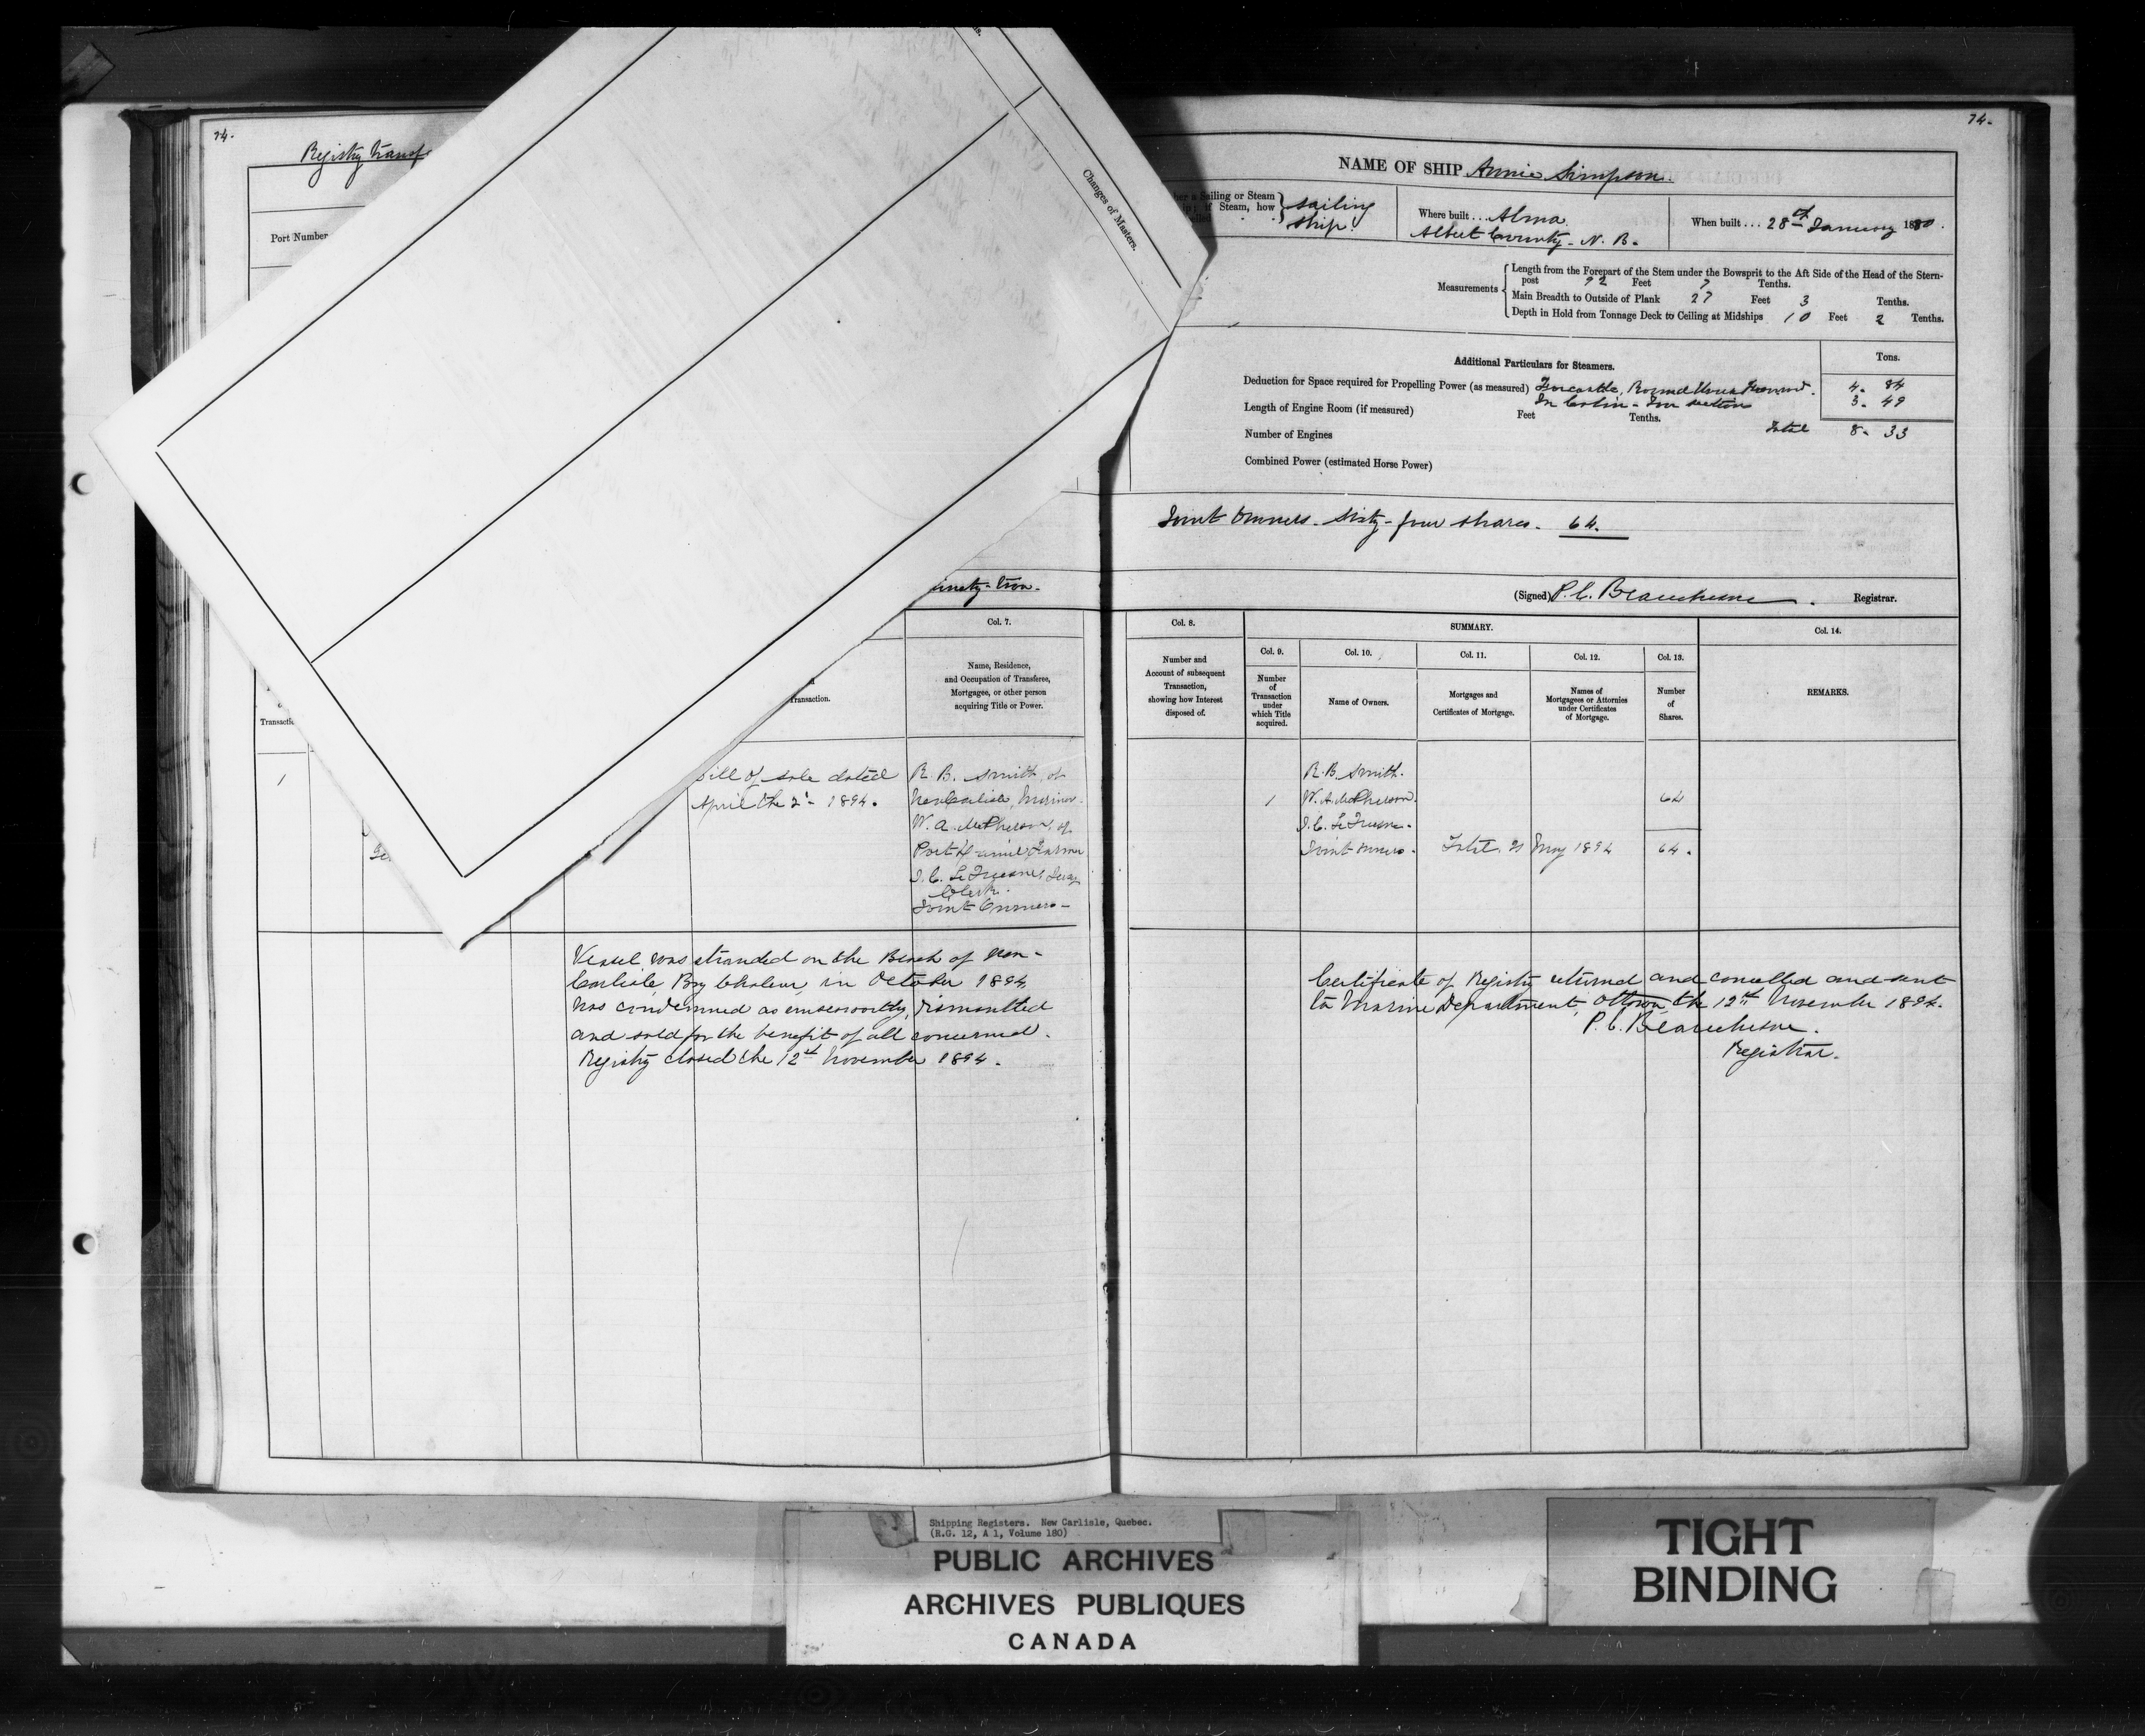 74.
74.
Registry transf
Port Number
Changes of Masters.
NAME OF SHIP Annie Simpson.
a Sailing or Steam
if Steam, how
sailing
ship.
Where built ... Alma
Albert County - N. B.
When built ... 28th January 1880.
Measurements
Length from the Forepart of the Stem under the Bowsprit to the Aft Side of the Head of the Stern-
post 92 Feet 7 Tenths.
Main Breadth to Outside of Plank 27 Feet 3 Tenths.
Depth in Hold from Tonnage Deck to Ceiling at Midships 10 Feet 2 Tenths.
Additional Particulars for Steamers.
Tons.
Deduction for Space required for Propelling Power (as measured) Forecastle, Round House 4. 84
Length of Engine Room (if measured) Feet Tenths. In Cabin - 3. 49
Number of Engines Total 8. 33
Combined Power (estimated Horse Power)
Joint Owners. Sixty-four shares. 64.
inety-two.
(Signed) P. C. Beauchesne. Registrar.
Transactio
ransaction.
Col. 7.
Name, Residence,
and Occupation of Transferee,
Mortgagee, or other person
acquiring Title or Power.
Col. 8.
Number and
Account of subsequent
Transaction,
showing how Interest
disposed of.
SUMMARY.
Col. 9.
Number
of
Transaction
under
which Title
acquired.
Col. 10.
Name of Owners.
Col. 11.
Mortgages and
Certificates of Mortgage.
Col. 12.
Names of
Mortgagees or Attornies
under Certificates
of Mortgage.
Col. 13.
Number
of
Shares.
Col. 14.
REMARKS.
1
Bill of sale dated
April the 2d - 1894.
R. B. Smith, of
New Carlisle, Mariner
W. A. McPherson, of
Port Daniel Farmer
Clerk.
Joint Owners -
1
R. B. Smith.
W. A. McPherson.
Joint owners.
Total, May 1894
64
64.
Vessel was stranded on the Beach of New-
Carlisle, Bay Chaleur, in October 1894
was condemned as unseaworthy, dismantled
and sold for the benefit of all concerned.
Registry closed the 12th November 1894.
Certificate of Registry returned and cancelled and sent
to Marine Department, Ottawa, the 12th November 1894.
P. C. Beauchesne.
Registrar.
Shipping Registers. New Carlisle, Quebec.
(R.G. 12, A 1, Volume 180)
PUBLIC ARCHIVES
ARCHIVES PUBLIQUES
CANADA
TIGHT
BINDING